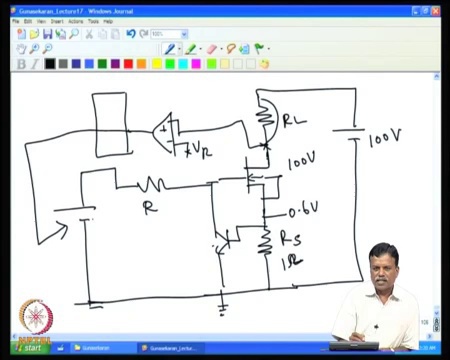 Gunasekaran_Lecture17 - Windows Journal
File Edit View Insert Actions Tools Help
B I
RL
+
VR
100V
100V
R
0.6V
RS
1Ω
start
Gunasekaran
Gunasekaran_Lectu...